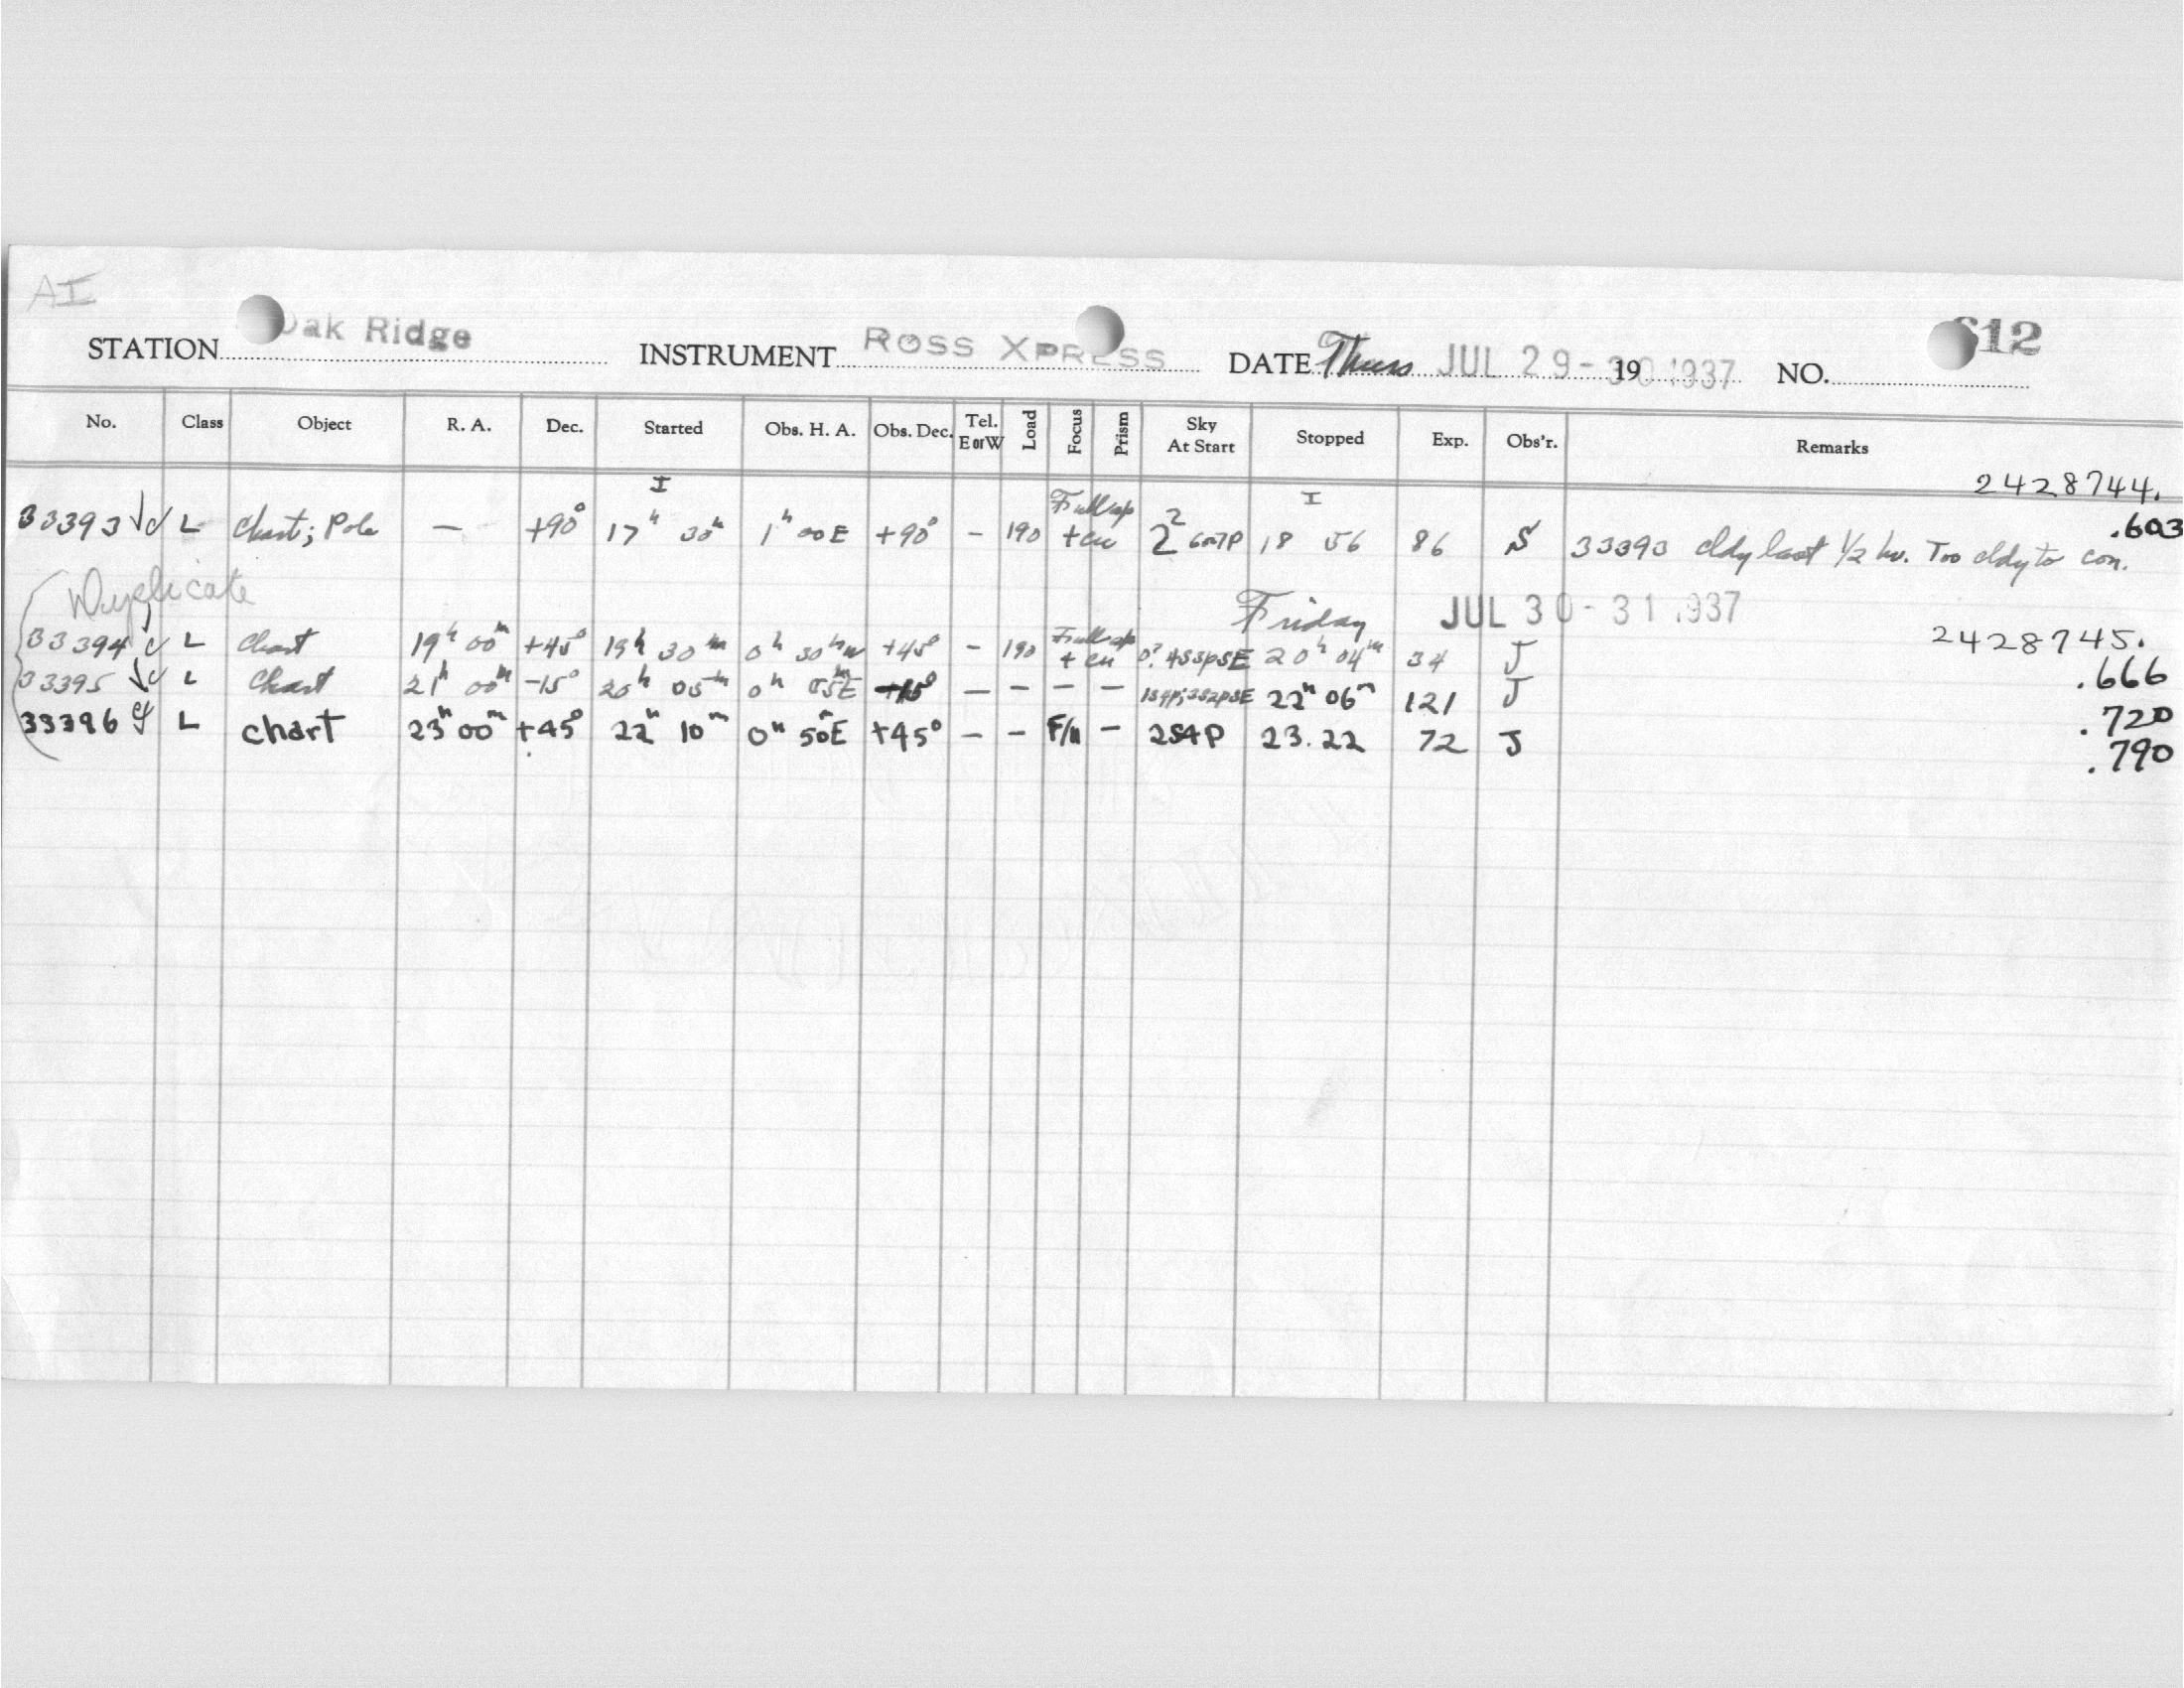 AI
STATION Oak Ridge INSTRUMENT ROSS XPRESS DATE Thurs JUL 29-30 1937 19 NO. 612
No. Class Object R. A. Dec. Started Obs. H. A. Obs. Dec. Tel. E or W Load Focus Prism Sky At Start Stopped Exp. Obs'r. Remarks
I I 2428744.
33393 L Chart; Pole — +90° 17h 30m 1h 00E +90° - 190 Full ap + cu 2 2 6m7P 18 56 86 S 33393 cldy last 1/2 hr. Too cldy to con. .603
Duplicate Friday JUL 30-31 1937
2428745.
33394 L Chart 19h 00m +45° 19h 30m 0h 30m W +45° - 190 Full ap + cu 0? 4S3pSE 20h 04m 34 J .666
33395 L Chart 21h 00m -15° 20h 05m 0h 55m E +15° - - - - 22h 06m 121 J .720
33396 L chart 23h 00m +45° 22h 10m 0h 50m E +45° - - F/11 - 2S4P 23.22 72 J .790